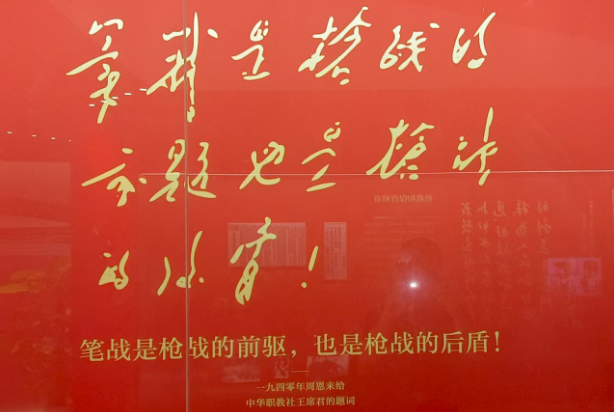 筆戰是槍战的
前驱也是槍战
的後盾！
笔战是枪战的前驱，也是枪战的后盾！
一九四零年周恩来给
中华职教社王席君的题词